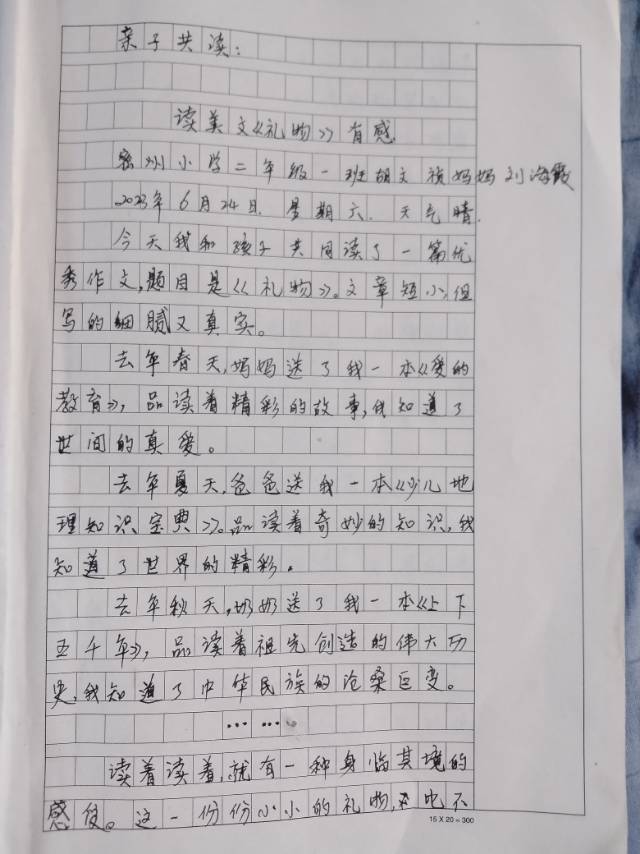 亲子共读：
读美文《礼物》有感
密州小学二年级一班胡文祯妈妈刘海霞
2023年6月24日. 星期六. 天气晴.
今天我和孩子共同读了一篇优
秀作文,题目是《礼物》。文章短小,但
写的细腻又真实。
去年春天,妈妈送了我一本《爱的
教育》,品读着精彩的故事,我知道了
世间的真爱。
去年夏天,爸爸送我一本《少儿地
理知识宝典》。品读着奇妙的知识,我
知道了世界的精彩。
去年秋天,奶奶送了我一本《上下
五千年》,品读着祖先创造的伟大历
史,我知道了中华民族的沧桑巨变。
……
读着读着,就有一种身临其境的
感受。这一份份小小的礼物,也不
15 X 20 = 300